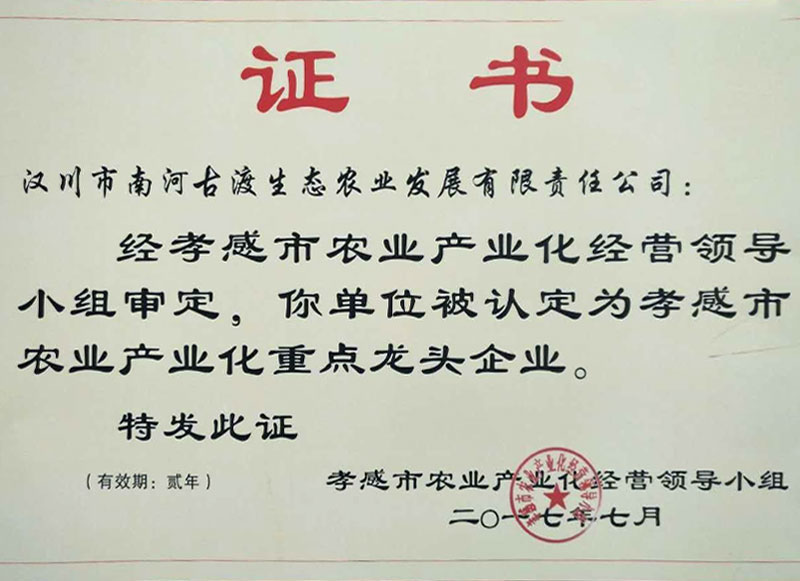 证书
汉川市南河古渡生态农业发展有限责任公司：
经孝感市农业产业化经营领导
小组审定，你单位被认定为孝感市
农业产业化重点龙头企业。
特发此证
（有效期：贰年）
孝感市农业产业化经营领导小组
二〇一七年七月
孝感市农业产业化经营领导小组